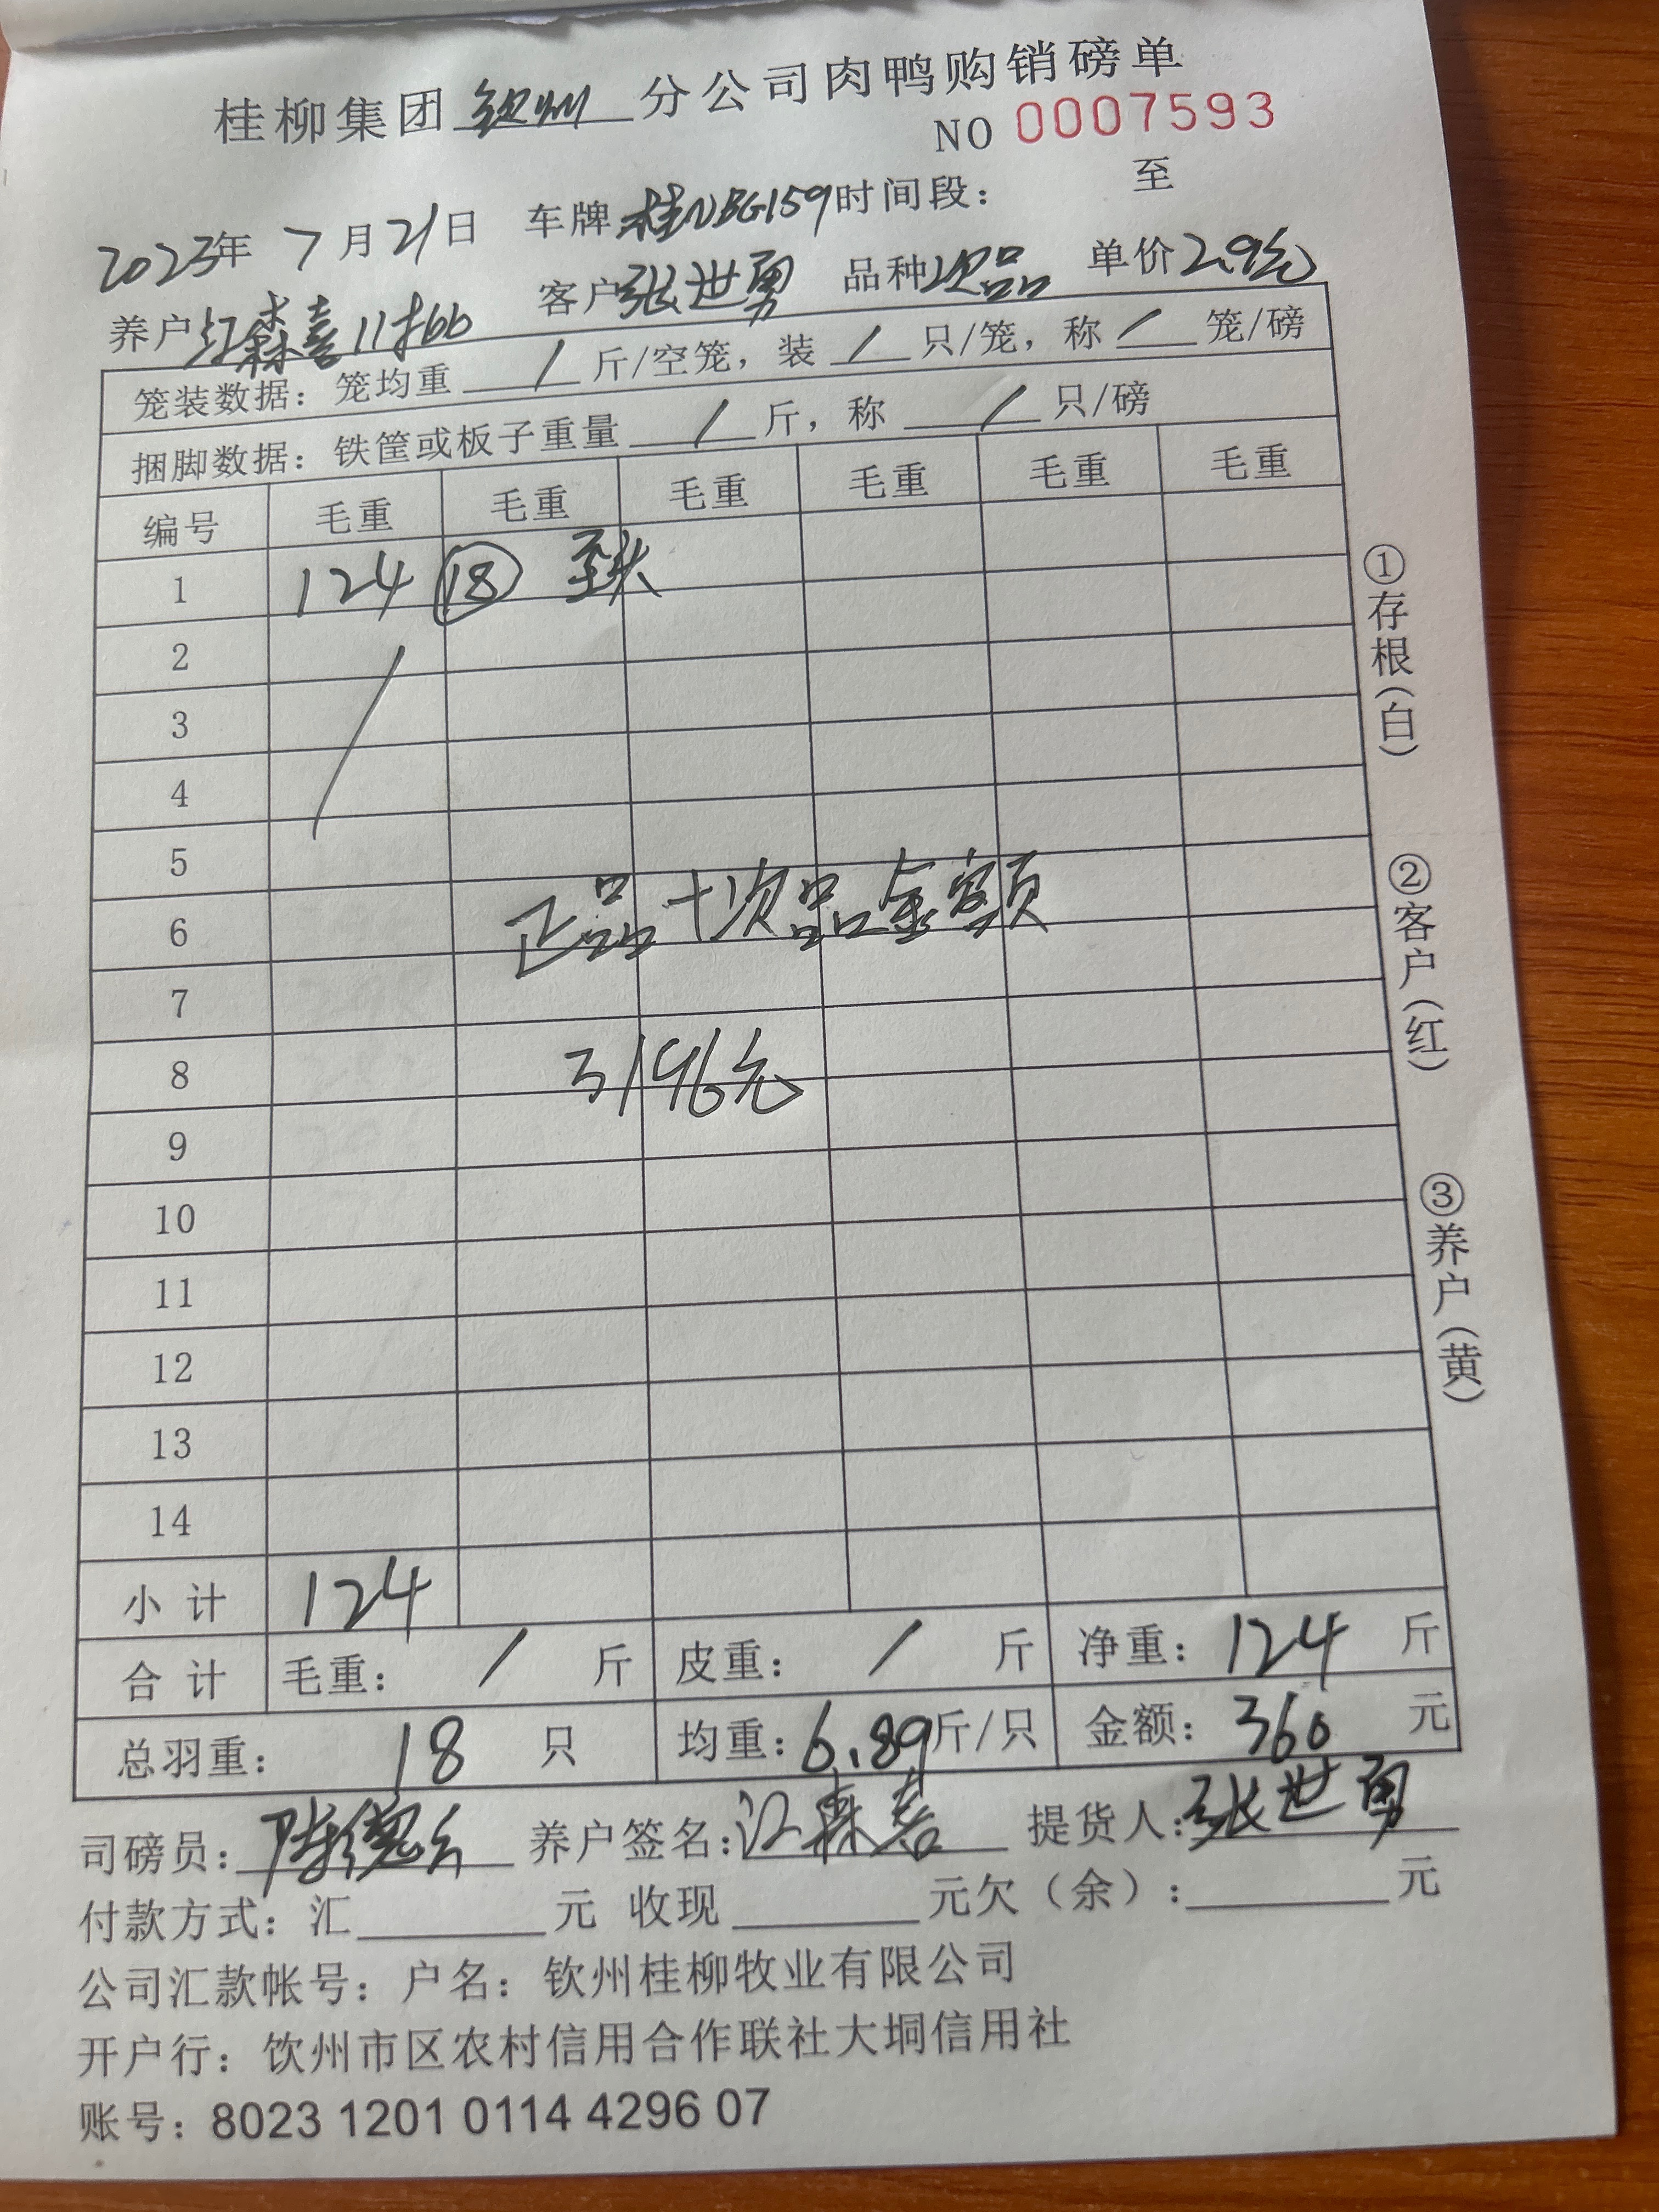 桂柳集团钦州分公司肉鸭购销磅单
NO 0007593
2023年 7月21日 车牌桂NBG159时间段： 至
养户江森喜11批 客户张世勇 品种次品 单价2.9元
笼装数据：笼均重 / 斤/空笼，装 / 只/笼，称 / 笼/磅
捆脚数据：铁筐或板子重量 / 斤，称 / 只/磅
编号 毛重 毛重 毛重 毛重 毛重 毛重
1 124 18
2
3
4
5
6 正品+次品金额
7
8 3196元
9
10
11
12
13
14
小 计 124
合 计 毛重： / 斤 皮重： / 斤 净重：124 斤
总羽重： 18 只 均重：6.89斤/只 金额：360 元
司磅员： 养户签名：江森喜 提货人：张世勇
付款方式：汇 元 收现 元欠（余）： 元
公司汇款帐号：户名：钦州桂柳牧业有限公司
开户行：饮州市区农村信用合作联社大垌信用社
账号：8023 1201 0114 4296 07
①存根（白）
②客户（红）
③养户（黄）